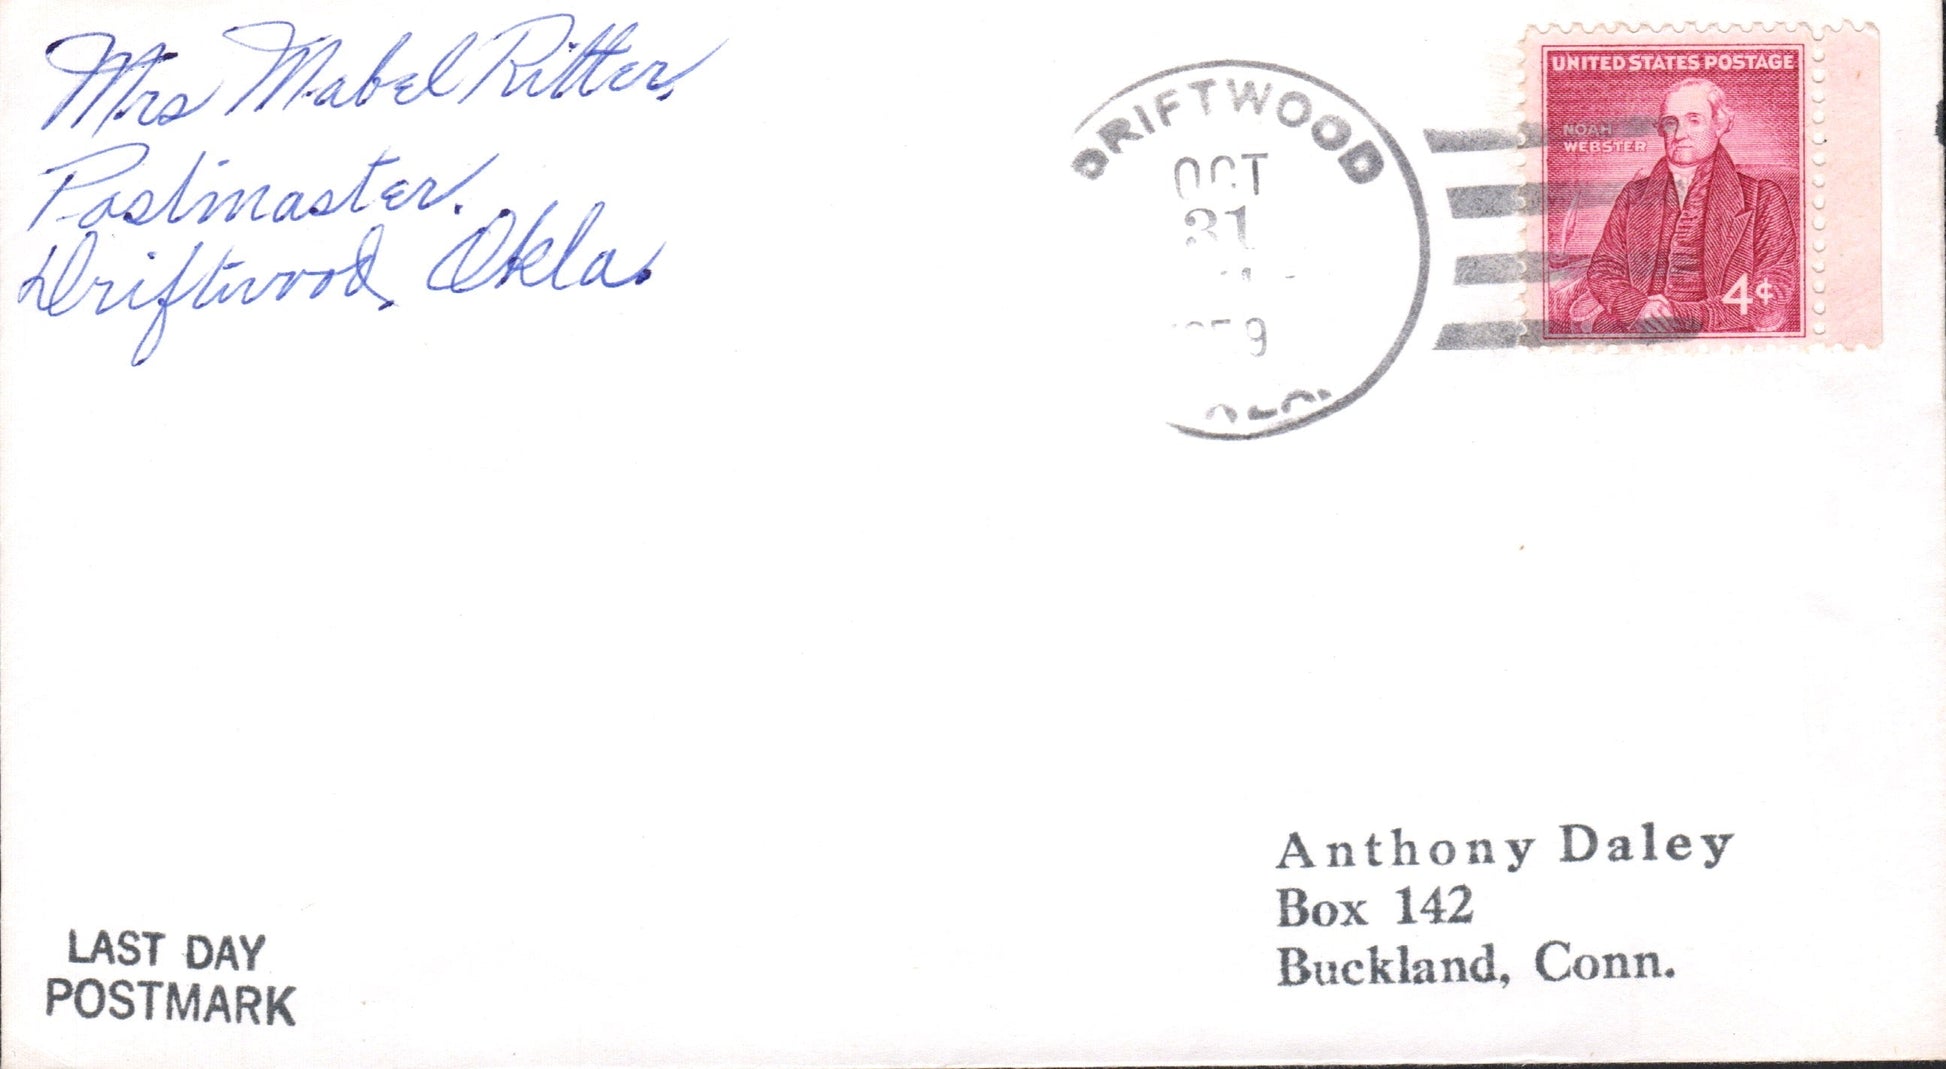 Mrs Mabel Ritter.
Postmaster.
Driftwood, Okla.
DRIFTWOOD
OCT
31
UNITED STATES POSTAGE
NOAH
WEBSTER
4¢
Anthony Daley
Box 142
Buckland, Conn.
LAST DAY
POSTMARK